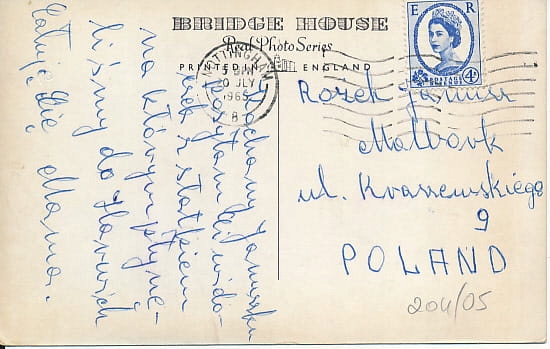 BRIDGE HOUSE
Real Photo Series
PRINTED IN ENGLAND
E R
POSTAGE
4D
NOTTINGHAM
JLY
1965
8
Kochany Januszku
posyłam Ci wido-
czek z statkiem
na którym płynę-
liśmy do Harwich
Całuję Cię
Mama.
Rożek Janusz
Malbork
ul. Kraszewskiego
9
POLAND
204/05